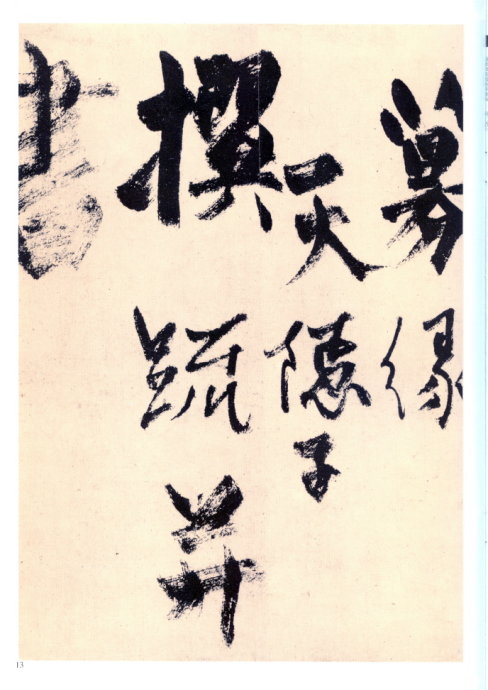 募緣
天隱子
撰疏并
書
13